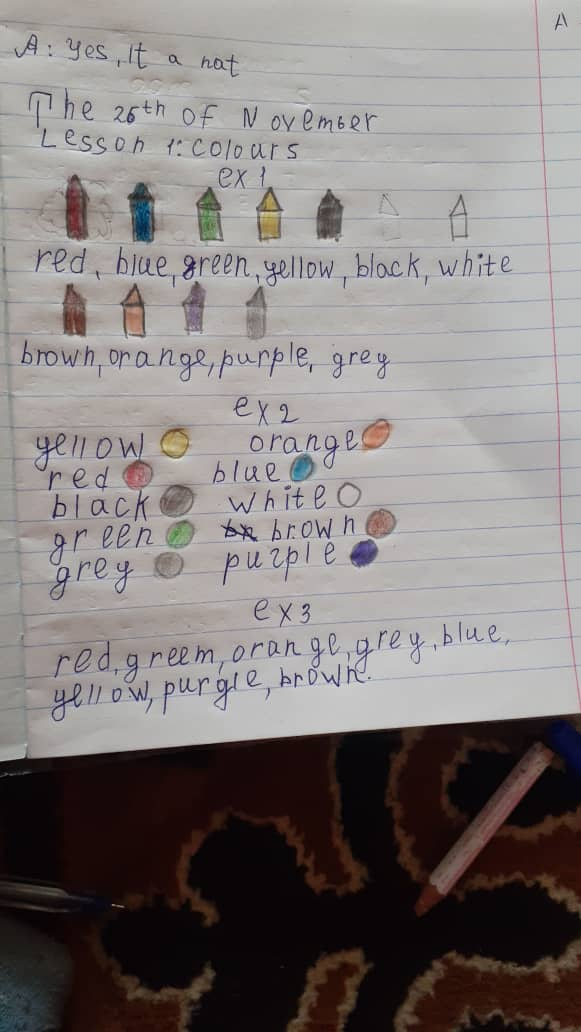 A
A: Yes, It a hat
The 26th of November
Lesson 1: colours
ex 1
red, blue, green, yellow, black, white
brown, orange, purple, grey
ex 2
yellow orange
red blue
black white
green brown
grey purple
ex 3
red, greem, orange, grey, blue,
yellow, purgle, brown.